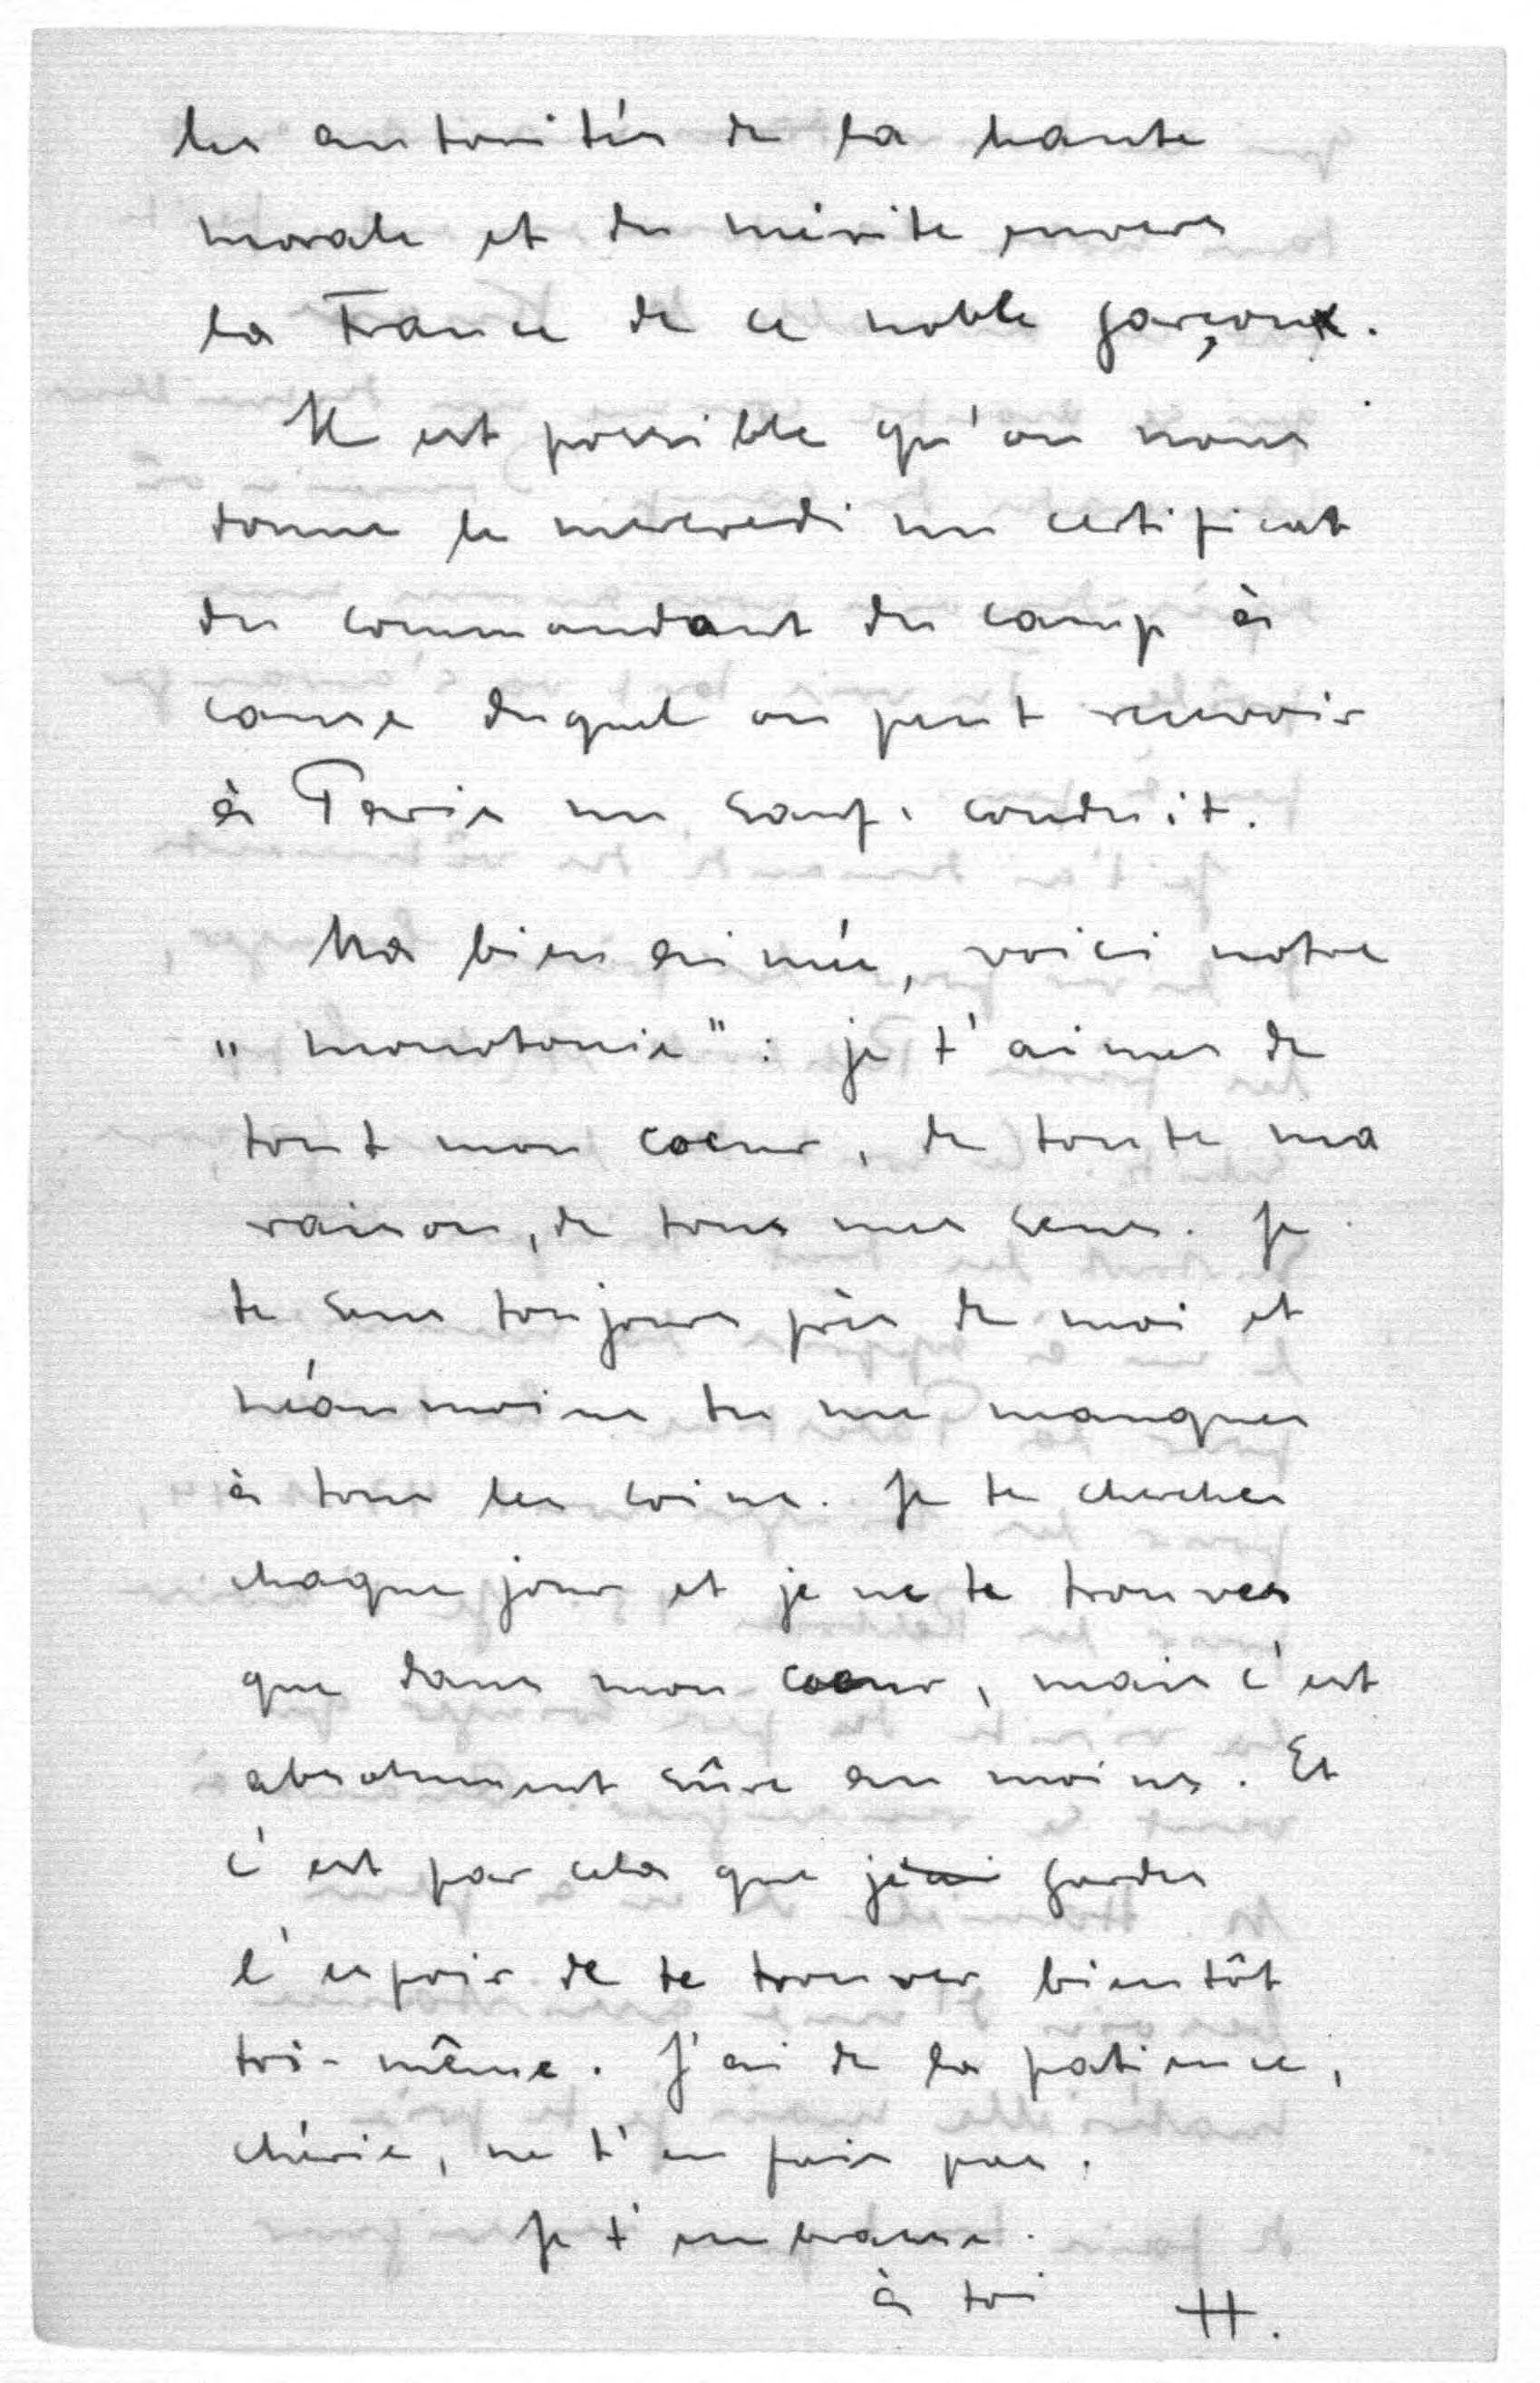 les autorités de la haute
morale et du mérite envers
la France de ce noble garçon.
Il est possible qu'on nous
donne le mercredi un certificat
du commandant du camp à
cause duquel on peut recevoir
à Paris un sauf-conduit.
Ma bien aimée, voici notre
„monotonie": je t'aimes de
tout mon coeur, de toute ma
raison, de tous mes sens. Je
te sens toujours près de moi et
néanmoins tu me manques
à tous les coins. Je te cherches
chaque jour et je ne te trouves
que dans mon coeur, mais c'est
absolument sûre au moins. Et
c'est par cela que je gardes
l'espoir de te trouver bientôt
toi-même. J'ai de la patience,
chérie, ne t'en fais pas.
Je t'embrasse.
à toi H.